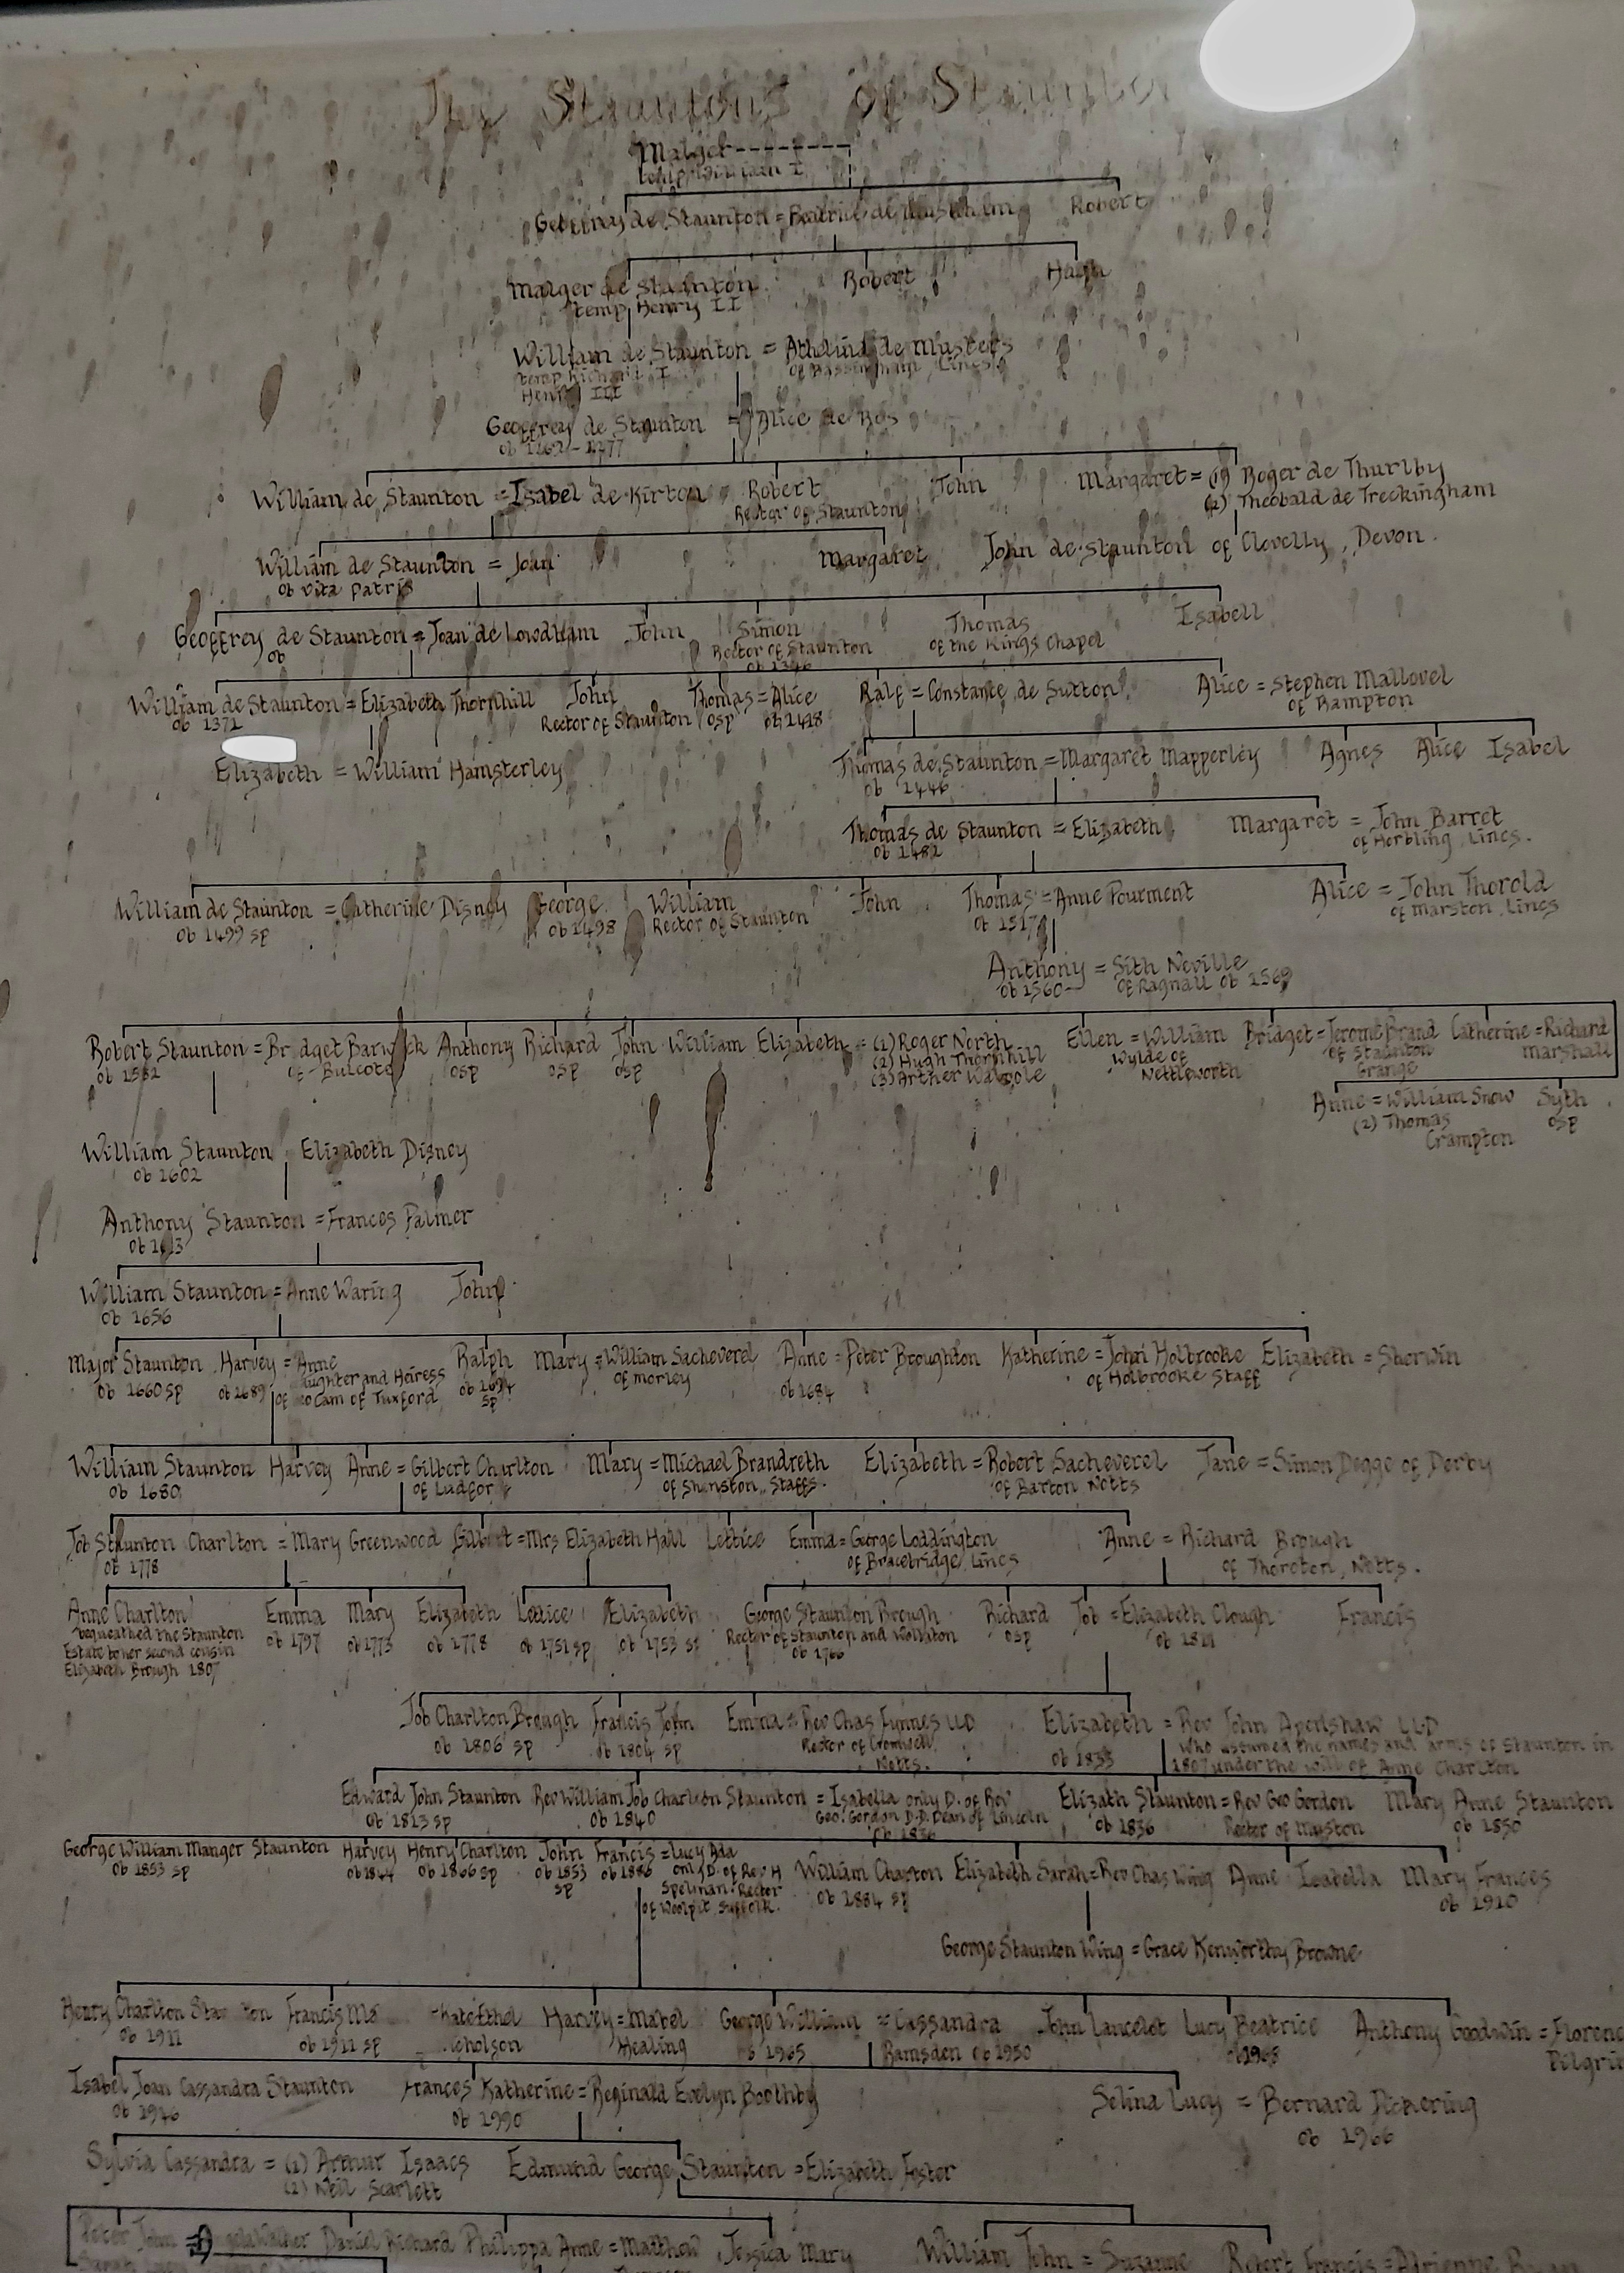 The Stauntons of Staunto
Malger
temp William I
Geoffrey de Staunton = Beatrice de Robert
Malger de Staunton Robert Hugh
temp Henry II
William de Staunton = Athelina de Musters
temp Richard I of Bassingham, Lincs.
Henry III
Geoffrey de Staunton = Alice de Ros
ob
William de Staunton = Isabel de Kirton Robert John Margaret = (1) Roger de Thurlby
Rector of Staunton (2) Theobald de Treckingham
William de Staunton = Joan Margaret John de Staunton of Clovelly, Devon.
ob vita patris
Geoffrey de Staunton = Joan de Lowdham John Simon Thomas Isabell
ob Rector of Staunton of the Kings Chapel
ob 1346
William de Staunton = Elizabeth Thornhill John Thomas = Alice Ralf = Constance de Sutton Alice = Stephen Mallovel
ob 1371 Rector of Staunton osp ob 1418 of Rampton
Elizabeth = William Hamsterley Thomas de Staunton = Margaret Mapperley Agnes Alice Isabel
ob 1446
Thomas de Staunton = Elizabeth Margaret = John Barret
ob 1482 of Horbling, Lincs.
William de Staunton = Catherine Disney George William John Thomas = Anne Pourment Alice = John Thorold
ob 1499 sp ob 1498 Rector of Staunton ob 1517 of Marston, Lincs
Anthony = Sith Neville
ob 1560 of Ragnall ob 1569
Robert Staunton = Bridget Barwick Anthony Richard John William Elizabeth = (1) Roger North Ellen = William Bridget = Jerome Brand Catherine = Richard
ob 1582 of Bulcote osp osp osp (2) Hugh Thornhill Wylde of of Staunton Marshall
(3) Arther Walpole Nettleworth Grange
Anne = William Snow Syth
(2) Thomas osp
Crampton
William Staunton Elizabeth Disney
ob 1602
Anthony Staunton = Frances Palmer
ob
William Staunton = Anne Waring John
ob 1656
Major Staunton Harvey = Anne Ralph Mary = William Sacheverel Anne = Peter Broughton Katherine = John Holbrooke Elizabeth = Sherwin
ob 1660 sp ob 1689 ughter and Heiress ob 1694 of Morley ob 1684 of Holbrooke Staff
of Cam of Tuxford sp
William Staunton Harvey Anne = Gilbert Charlton Mary = Michael Brandreth Elizabeth = Robert Sacheverel Jane = Simon Degge of Derby
ob 1680 of Ludfor of Shenston, Staffs. of Barton Notts
Job Staunton Charlton = Mary Greenwood Gilbert = Mrs Elizabeth Hall Lettice Emma = George Loddington Anne = Richard Brough
ob 1778 of Bracebridge, Lincs of Thoroton, Notts.
Anne Charlton Emma Mary Elizabeth Lettice Elizabeth George Staunton Brough Richard Job = Elizabeth Clough Francis
bequeathed the Staunton ob 1797 ob 1773 ob 1778 ob 1751 sp ob 1753 sp Rector of Staunton and Wollaton osp ob 1811
Estate to her second cousin ob 1766
Elizabeth Brough 1807
Job Charlton Brough Francis John Emma = Rev Chas Fynnes LLD Elizabeth = Rev John Aspenshaw LLD
ob 1806 sp ob 1804 sp Rector of Cromwell, ob 1833 who assumed the names and arms of Staunton in
Notts. 1807 under the will of Anne Charlton
Edward John Staunton Rev William Job Charlton Staunton = Isabella only D. of Rev Elizath Staunton = Rev Geo Gordon Mary Anne Staunton
ob 1813 sp ob 1840 Geo. Gordon D.D. Dean of Lincoln ob 1836 Rector of Muston ob 1850
George William Manger Staunton Harvey Henry Charlton John Francis = Lucy Ada William Charlton Elizabeth Sarah = Rev Chas Wing Anne Isabella Mary Frances
ob 1853 sp ob 1844 ob 1866 sp ob 1853 ob 1886 only D. of Rev H ob 1884 sp ob 1910
sp Spelman. Rector
of Woolpit, Suffolk.
George Staunton Wing = Grace Kenworthy Browne
Henry Charlton Sta ton Francis Ma Kate Ethel Harvey = Mabel George William = Cassandra John Lancelot Lucy Beatrice Anthony Goodwin = Florenc
ob 1911 ob 1911 sp icholson Healing 1965 Ramsden ob 1950 ob 1968 Pilgri
Isabel Joan Cassandra Staunton Frances Katherine = Reginald Evelyn Boothby Selina Lucy = Bernard Pickering
ob 1946 ob 1990 ob 1966
Sylvia Cassandra = (1) Arthur Isaacs Edmund George Staunton = Elizabeth Foster
(2) Neil Scarlett
Peter John = Angela Walker Daniel Richard Philippa Anne = Matthew Jessica Mary William John = Suzanne Robert Francis = Adrienne